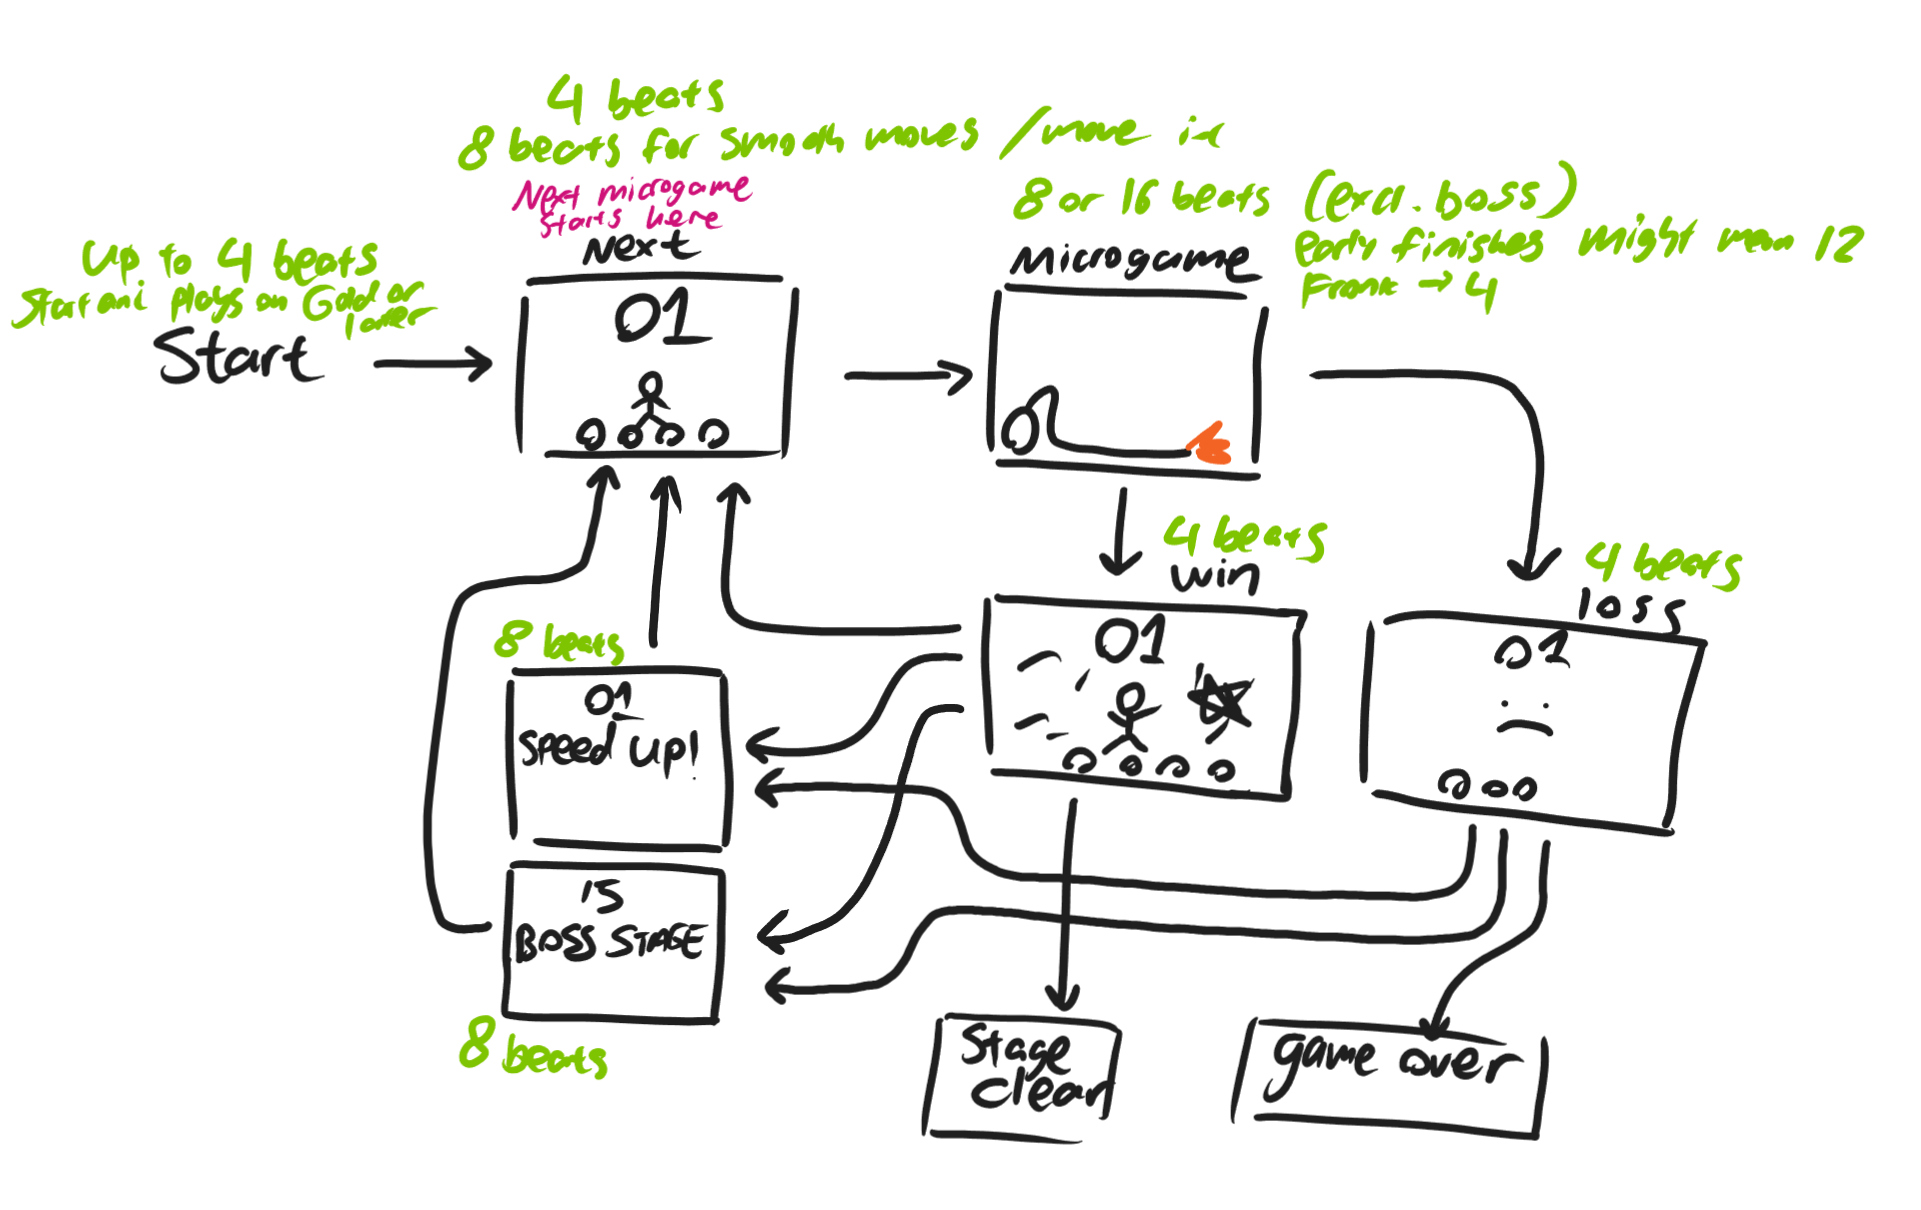 4 beats
8 beats for smooth moves / move it
Next microgame
starts here
Next
01
Up to 4 beats
Start ani plays on Gold or
later
Start
8 or 16 beats (excl. boss)
Early finishes might mean 12
Fronk → 4
Microgame
4 beats
win
01
4 beats
loss
01
8 beats
01
Speed Up!
15
BOSS STAGE
8 beats
Stage
clear
game over